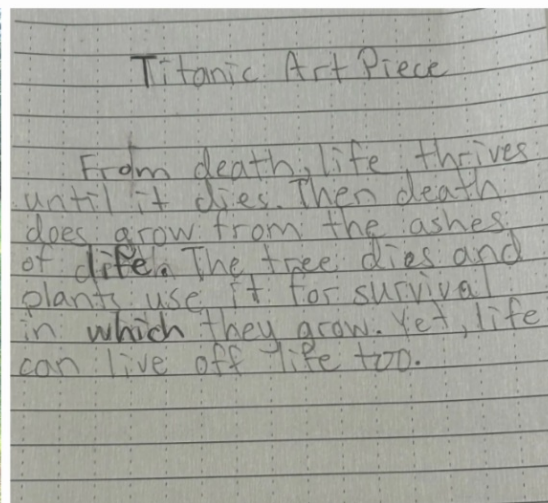 Titanic Art Piece
From death, life thrives
until it dies. Then death
does grow from the ashes
of life. The tree dies and
plants use it for survival
in which they grow. Yet, life
can live off life too.